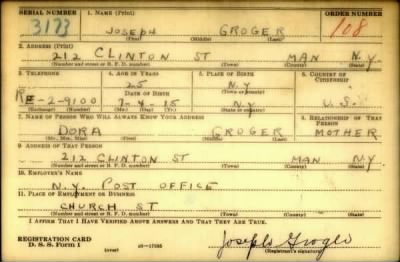 SERIAL NUMBER 1. NAME (Print) ORDER NUMBER
3173 JOSEPH GROGER 108
(First) (Middle) (Last)
2. ADDRESS (Print)
212 CLINTON ST MAN N.Y.
(Number and street or R. F. D. number) (Town) (County) (State)
3. TELEPHONE 4. AGE IN YEARS 5. PLACE OF BIRTH 6. COUNTRY OF CITIZENSHIP
25 N.Y.
DATE OF BIRTH (Town or county)
-2-9100 7-4-15 N.Y. U.S.
(Exchange) (No.) (Mo.) (Day) (Yr.) (State or country)
7. NAME OF PERSON WHO WILL ALWAYS KNOW YOUR ADDRESS 8. RELATIONSHIP OF THAT PERSON
DORA GROGER MOTHER
(Mr., Mrs., Miss) (First) (Middle) (Last)
9. ADDRESS OF THAT PERSON
212 CLINTON ST MAN N.Y.
(Number and street or R. F. D. number) (Town) (County) (State)
10. EMPLOYER'S NAME
N.Y. POST OFFICE
11. PLACE OF EMPLOYMENT OR BUSINESS
CHURCH ST
(Number and street or R. F. D. number) (Town) (County) (State)
I AFFIRM THAT I HAVE VERIFIED ABOVE ANSWERS AND THAT THEY ARE TRUE.
REGISTRATION CARD
D. S. S. Form 1 (over) Joseph Groger
(Registrant's signature)